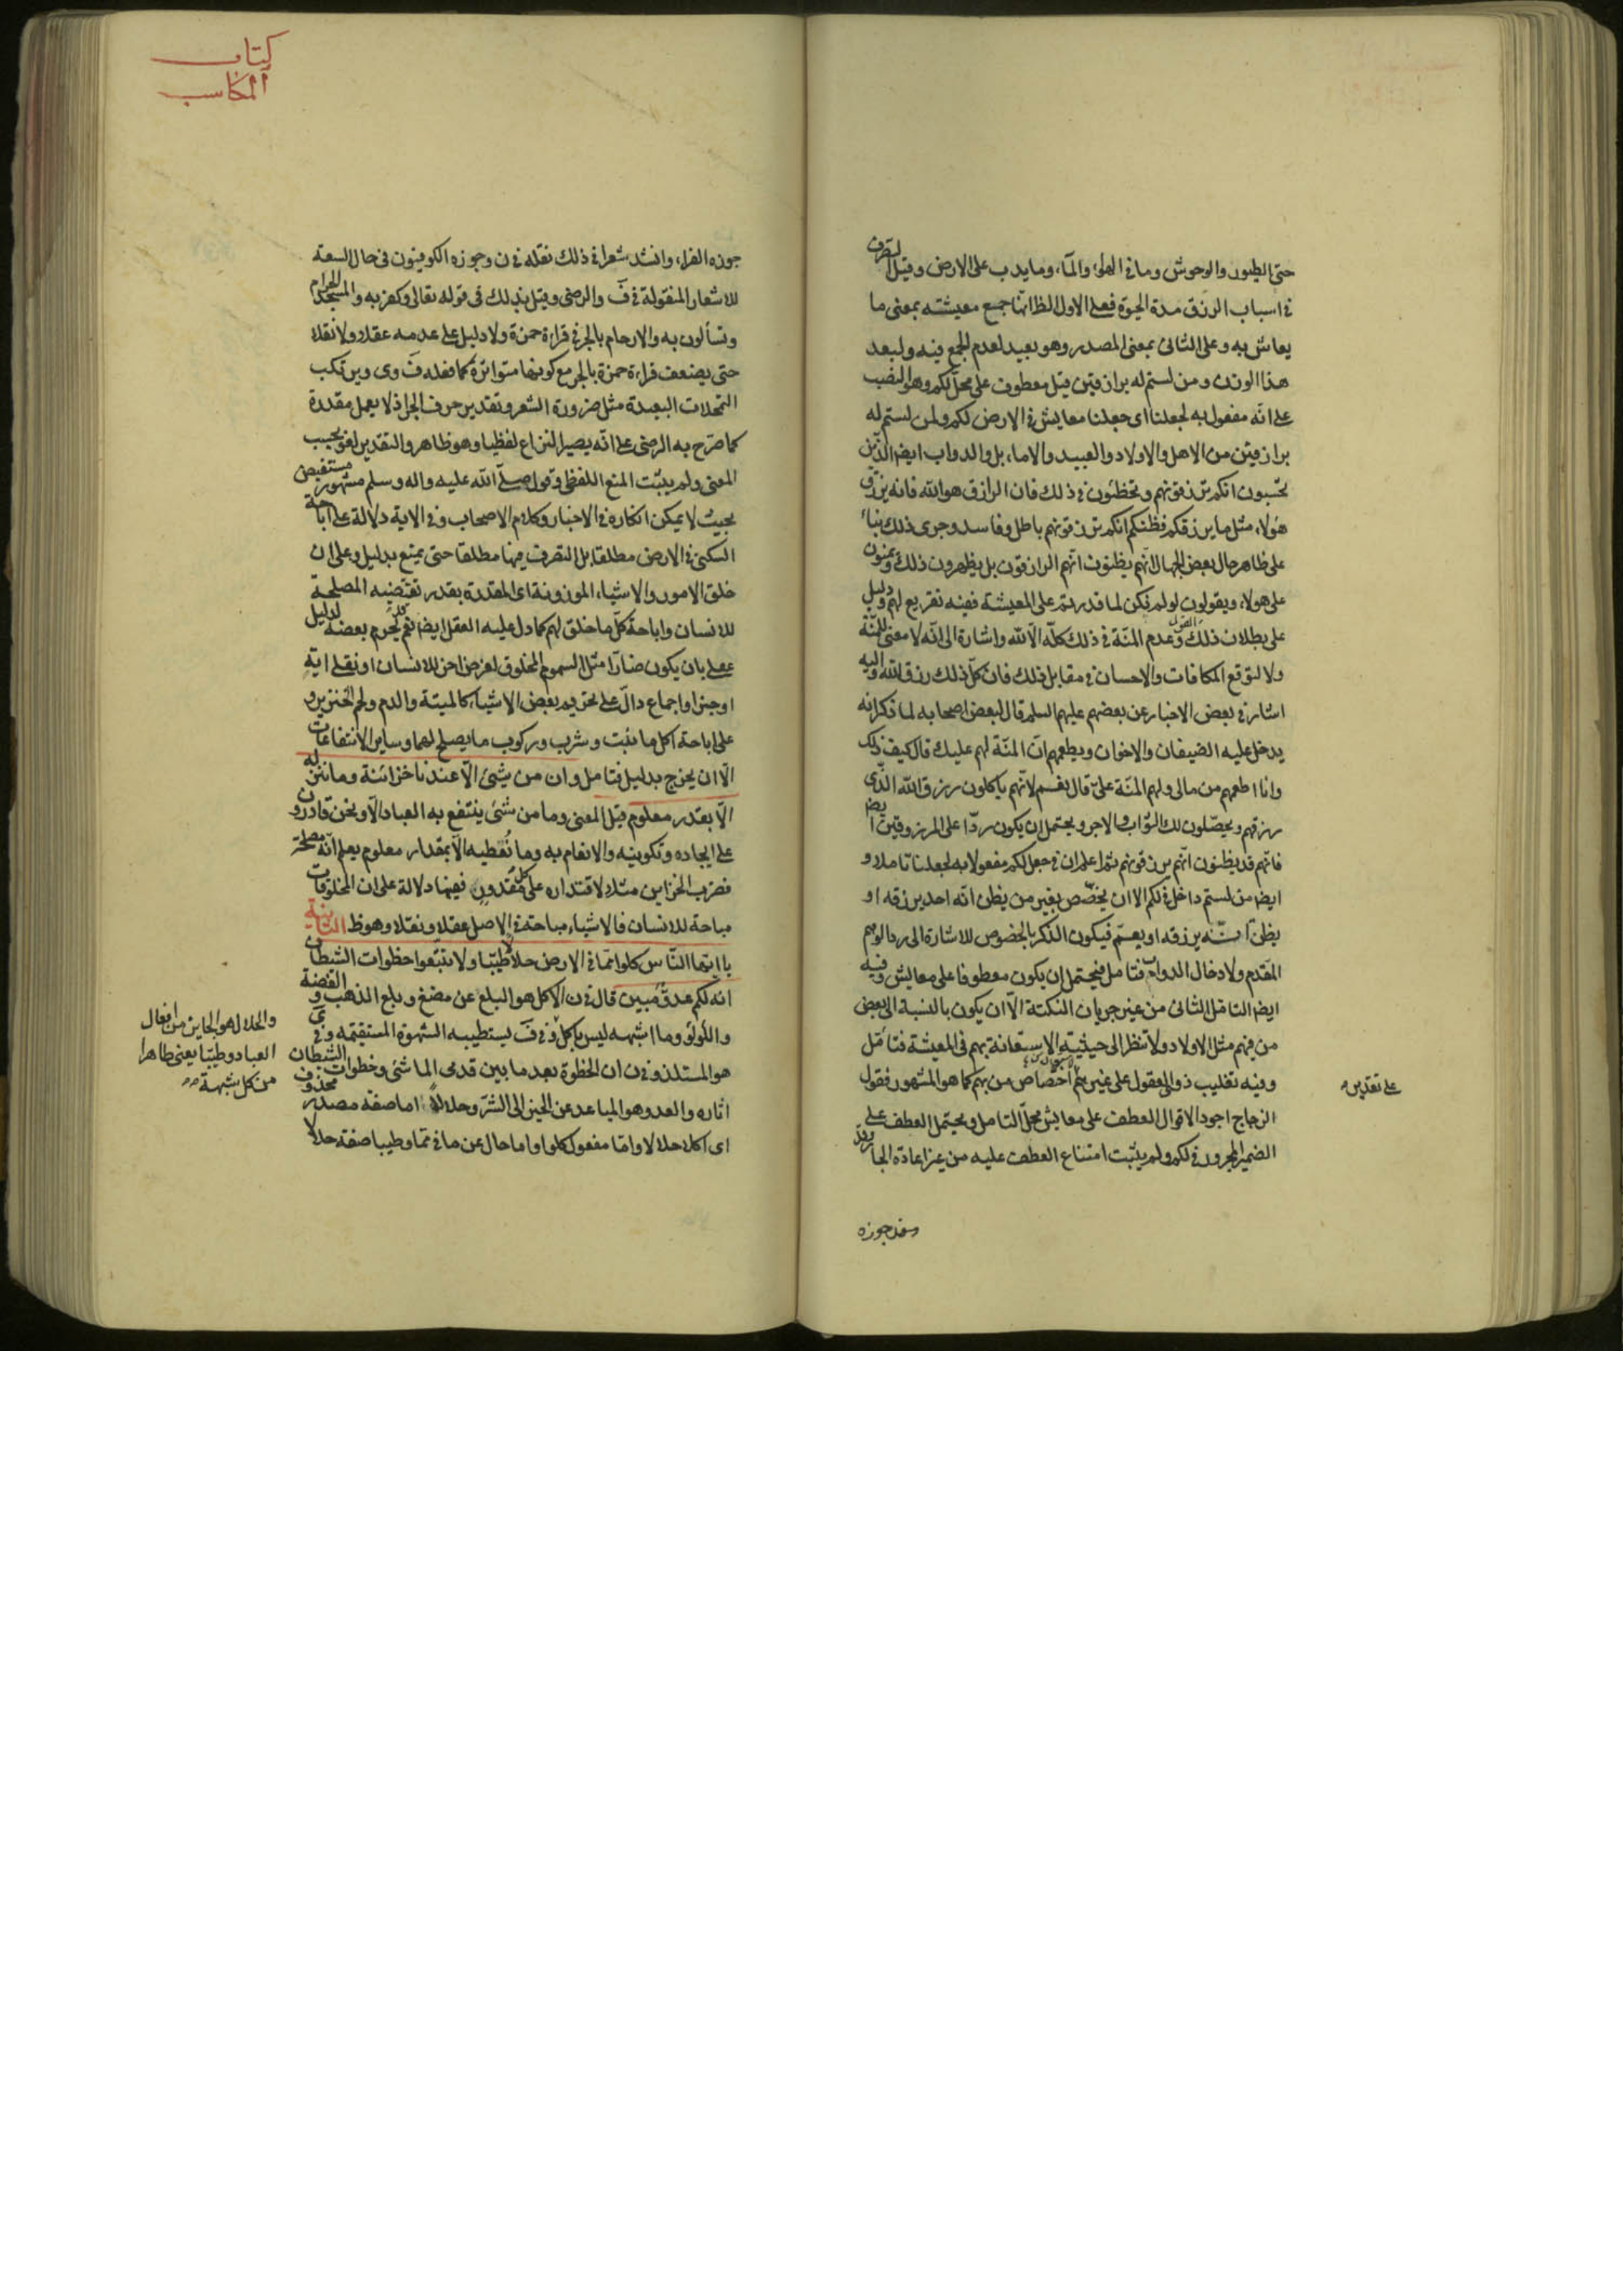 حتى الطيور والوحوش وما فى الهواء والماء وما يدب على الارض وقيل التصرف
فى اسباب الرزق مدة الحيوة فعلى الاول الظ انها جمع معيشته بمعنى ما
يعاش به وعلى الثانى بمعنى المصدر وهو بعيد لعدم الجمع فيه ولبعد
هذا الوزن ومن لستم له برازقين قيل معطوف على محل لكم وهو النصب
على انه مفعول به لجعلنا اى جعلنا معايش فى الارض لكم ولمن لستم له
برازقين من الاهل والاولاد والعبيد والاماء بل والدواب ايضا الذين
تحسبون انكم ترزقونهم وتخطئون فى ذلك فان الرازق هو الله فانه يرزق
هولاء مثل ما يرزقكم فظنكم انكم ترزقونهم باطل وفاسد وجرى ذلك بناء
على ظاهر حال بعض الجهال انهم يظنون انهم الرازقون بل يظهرون ذلك ويمنون
على هولاء ويقولون لو لم نكن لما قدرتم على المعيشة ففيه تقريع لهم ودليل
على بطلان ذلك القول وعدم المنة فى ذلك كله الا لله واشارة الى انه لا معنى للمنة
ولا لتوقع المكافات والاحسان فى مقابل ذلك فان كل ذلك رزق الله واليه
اشار فى بعض الاخبار عن بعضهم عليهم السلم قال لبعض اصحابه لما ذكر انه
يدخل عليه الضيفان والاخوان ويطعمهم ان المنة لهم عليك قال كيف ذلك
وانا اطعمهم من مالى ولهم المنة على قال نعم لانهم ياكلون رزق الله الذى
رزقهم ويحصلون لك الثواب والاجر ويحتمل ان يكون ردا على المرزوقين ايض
فانهم قد يظنون انهم يرزقونهم ثم اعلم ان فى جعل لكم مفعولا به لجعلنا تاملا و
ايض من لستم داخل فى لكم الا ان يخصص بغير من يظن انه احد يرزقه او
يظن انه يرزقه او يعمم فيكون الذكر بالخصوص للاشارة الى رد الوهم
المقدم ولادخال الدواب فتامل فيحتمل ان يكون معطوفا على معايش وفيه
ايض التامل الثانى من غير جريان النكتة الا ان يكون بالنسبة الى بعض
من فيهم مثل الاولاد ولا تنظر الى حيثية الاستعانة بهم فى المعيشة فتامل
وفيه تغليب ذوى العقول على غيرهم اختصاص من بهم كما هو المشهور فقول
على تقدير
الزجاج اجود الاقوال العطف على معايش محل التامل ويحتمل العطف على
الضمير المجرور فى لكم ولم يثبت امتناع العطف عليه من غير اعادة الجار وقد
وقد جوزه
كتاب
المكاسب
جوزه الفراء وانشد شعرا فى ذلك نقله فى ن وجوزه الكوفيون فى حال السعة
للاشعار المنقولة فى ف والرضى وقيل بذلك فى قوله تعالى وكفر به والمسجد الحرام
وتسألون به والارحام بالجر فى قراءة حمزة ولا دليل على عدمه عقلا ولا نقلا
حتى يضعف قراءة حمزة بالجر مع كونها متواترة كما فعله ف وى ويرتكب
التمحلات البعيدة مثل ضرورة الشعر وتقدير حرف الجر اذ لا يعمل مقدرة
كما صرح به الرضى على انه يصير النزاع لفظيا وهو ظاهر والتقدير لغو بحسب
المعنى ولم يثبت المنع اللفظى وقول صلى الله عليه واله وسلم مشهور مستفيض
بحيث لا يمكن انكاره فى الاخبار وكلام الاصحاب وفى الاية دلالة على اباحة
السكنى فى الارض مطلقا بل التصرف فيها مطلقا حتى يمنع بدليل وعلى ان
خلق الامور والاشياء الموزونة اى المقدرة بقدر تقتضيه المصلحة
للانسان واباحة كل ما خلق لهم كما دل عليه العقل ايض ثم يحرم بعضه لدليل
عقلى بان يكون ضارا مثل السموم المخلوق لغرض اخر للانسان او نقلى اية
او خبر او اجماع دال على تحريم بعض الاشياء كالميتة والدم ولحم الخنزير و
على اباحة اكل ما نبت وشرب وركوب ما يصلح لهما وساير الانتفاعات
الا ان يخرج بدليل فتامل وان من شئ الا عندنا خزائنه وما ننزله
الا بقدر معلوم قيل المعنى وما من شئ ينتفع به العباد الا ونحن قادرون
على ايجاده وتكوينه والانعام به وما نعطيه الا بمقدار معلوم يعلم انه مصلحة
فضرب الخزاين مثلا لاقتداره على كل مقدور ففيها دلالة على ان المخلوقات
مباحة للانسان فالاشياء مباحة فى الاصل عقلا ونقلا وهو ظ الثانية
يا ايها الناس كلوا مما فى الارض حلالا طيبا ولا تتبعوا خطوات الشيطان
انه لكم عدو مبين قال فى ن الاكل هو البلع عن مضغ وبلع الذهب والفضة
واللؤلؤ وما اشبهه ليس باكل وفى ف يستطيبه الشهوة المستقيمة وفى ى
هو المستلذ وفى ن ان الخطوة بعد ما بين قدمى الماشى وخطوات الشيطان
اثاره والعدو هو المباعد عن الخير الى الشر وحلالا اما صفة مصدر محذوف
اى اكلا حلالا واما مفعول كلوا واما حال عن ما فى مما وطيبا صفة حلالا
والحلال هو الجايز من افعال
العباد وطيبا يعنى طاهرا
من كل شبهة